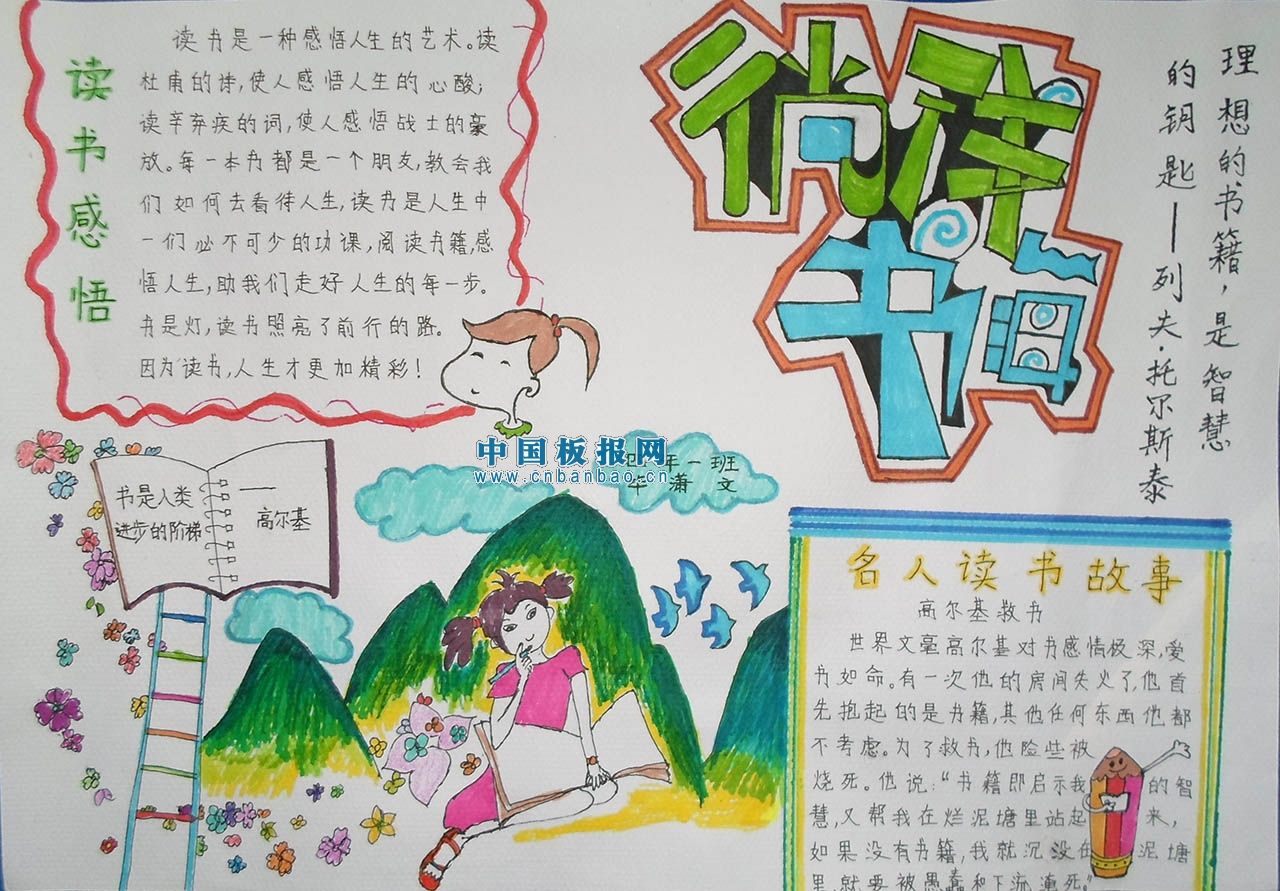 读书感悟
读书是一种感悟人生的艺术。读
杜甫的诗,使人感悟人生的心酸;
读辛弃疾的词,使人感悟战士的豪
放。每一本书都是一个朋友,教会我
们如何去看待人生,读书是人生中
一们必不可少的功课,阅读书籍,感
悟人生,助我们走好人生的每一步。
书是灯,读书照亮了前行的路。
因为读书,人生才更加精彩!
徜徉
书海
理想的书籍,是智慧
的钥匙—列夫·托尔斯泰
书是人类
进步的阶梯
——
高尔基
中国板报网
www.cnbanbao.cn
年一班
潇文
名人读书故事
高尔基救书
世界文毫高尔基对书感情极深,爱
书如命。有一次他的房间失火了,他首
先抱起的是书籍,其他任何东西他都
不考虑。为了救书,他险些被
烧死。他说:“书籍即启示我的智
慧,又帮我在烂泥塘里站起来,
如果没有书籍,我就沉没在泥塘
里,就要被愚蠢和下流淹死。”